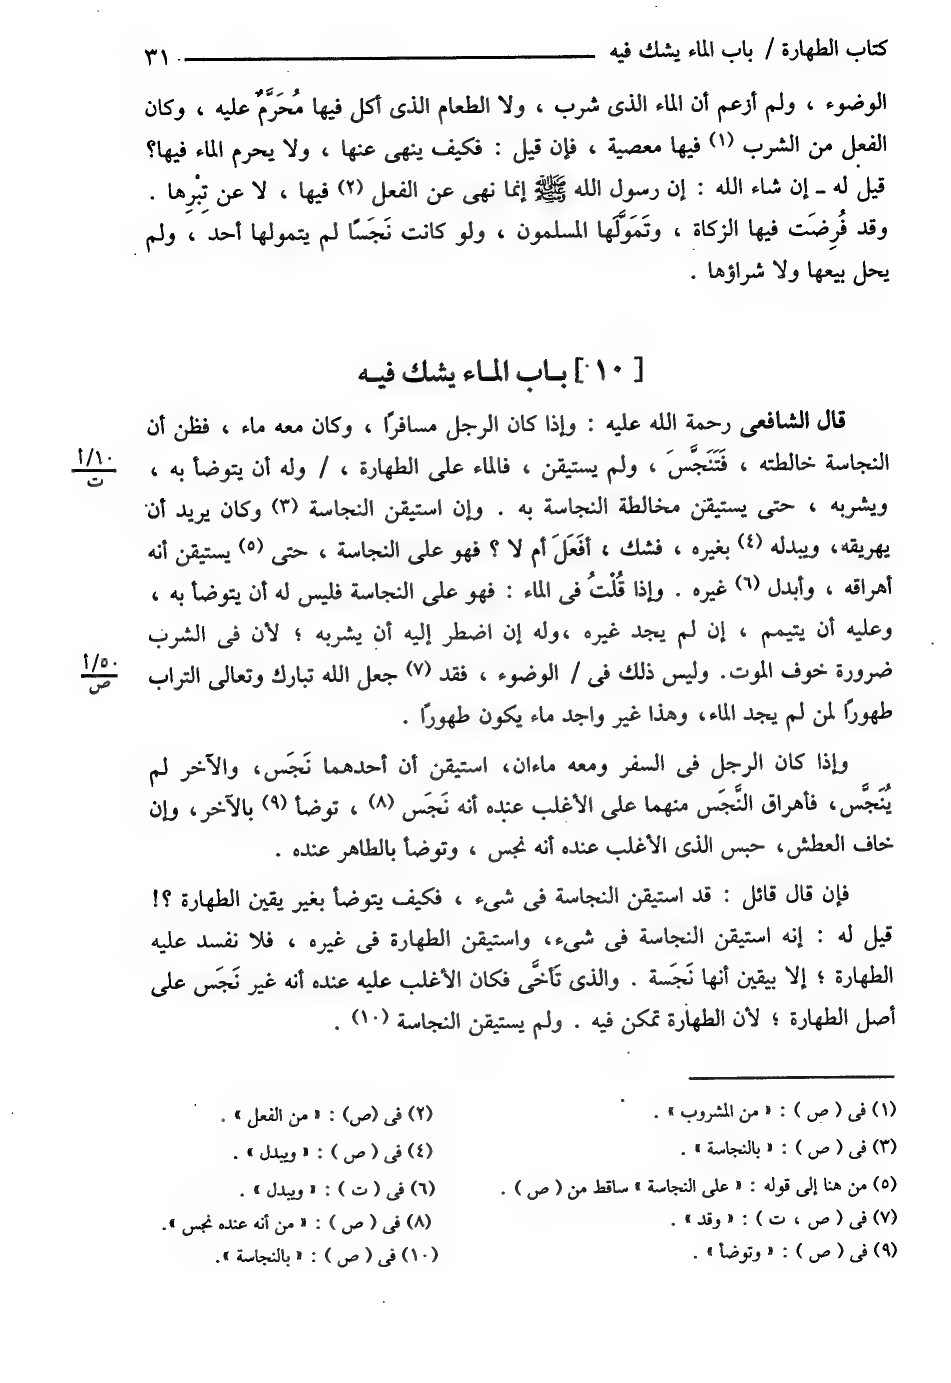 كتاب الطهارة / باب الماء يشك فيه ـــــــــــــــــ ٣١
الوضوء ، ولم أزعم أن الماء الذى شرب ، ولا الطعام الذى أكل فيها مُحَرَّمٌ عليه ، وكان
الفعل من الشرب (١) فيها معصية ، فإن قيل : فكيف ينهى عنها ، ولا يحرم الماء فيها؟
قيل له ـ إن شاء الله : إن رسول الله ﷺ إنما نهى عن الفعل (٢) فيها ، لا عن تِبْرِها .
وقد فُرِضَت فيها الزكاة ، وتَمَوَّلَها المسلمون ، ولو كانت نَجَسًا لم يتمولها أحد ، ولم
يحل بيعها ولا شراؤها .
[ ١٠ ] بـاب المـاء يشك فيـه
قال الشافعى رحمة الله عليه : وإذا كان الرجل مسافرًا ، وكان معه ماء ، فظن أن
النجاسة خالطته ، فَتَنَجَّسَ ، ولم يستيقن ، فالماء على الطهارة ، / وله أن يتوضأ به ،
١٠/أ
ت
ويشربه ، حتى يستيقن مخالطة النجاسة به . وإن استيقن النجاسة (٣) وكان يريد أن
يهريقه، ويبدله (٤) بغيره ، فشك ، أفَعَلَ أم لا ؟ فهو على النجاسة ، حتى (٥) يستيقن أنه
أهراقه ، وأبدل (٦) غيره . وإذا قُلْتُ فى الماء : فهو على النجاسة فليس له أن يتوضأ به ،
وعليه أن يتيمم ، إن لم يجد غيره ،وله إن اضطر إليه أن يشربه ؛ لأن فى الشرب
ضرورة خوف الموت. وليس ذلك فى / الوضوء ، فقد (٧) جعل الله تبارك وتعالى التراب
٥٠/أ
ص
طهورًا لمن لم يجد الماء، وهذا غير واجد ماء يكون طهورًا .
وإذا كان الرجل فى السفر ومعه ماءان، استيقن أن أحدهما نَجَس، والآخر لم
يُنَجَّس، فأهراق النَّجَس منهما على الأغلب عنده أنه نَجَس (٨) ، توضأ (٩) بالآخر، وإن
خاف العطش، حبس الذى الأغلب عنده أنه نجس ، وتوضأ بالطاهر عنده .
فإن قال قائل : قد استيقن النجاسة فى شىء ، فكيف يتوضأ بغير يقين الطهارة ؟!
قيل له : إنه استيقن النجاسة فى شىء، واستيقن الطهارة فى غيره ، فلا نفسد عليه
الطهارة ؛ إلا بيقين أنها نَجَسة . والذى تَأخَّى فكان الأغلب عليه عنده أنه غير نَجَس على
أصل الطهارة ؛ لأن الطهارة تمكن فيه . ولم يستيقن النجاسة (١٠) .
(١) فى ( ص ) : « من المشروب » .
(٢) فى (ص) : « من الفعل » .
(٣) فى ( ص ) : « بالنجاسة » .
(٤) فى ( ص ) : « ويبدل » .
(٥) من هنا إلى قوله : « على النجاسة » ساقط من ( ص ) .
(٦) فى ( ت ) : « ويبدل » .
(٧) فى ( ص ، ت ) : « وقد » .
(٨) فى ( ص ) : « من أنه عنده نجس ».
(٩) فى ( ص ) : « وتوضأ » .
(١٠) فى ( ص ) : « بالنجاسة ».